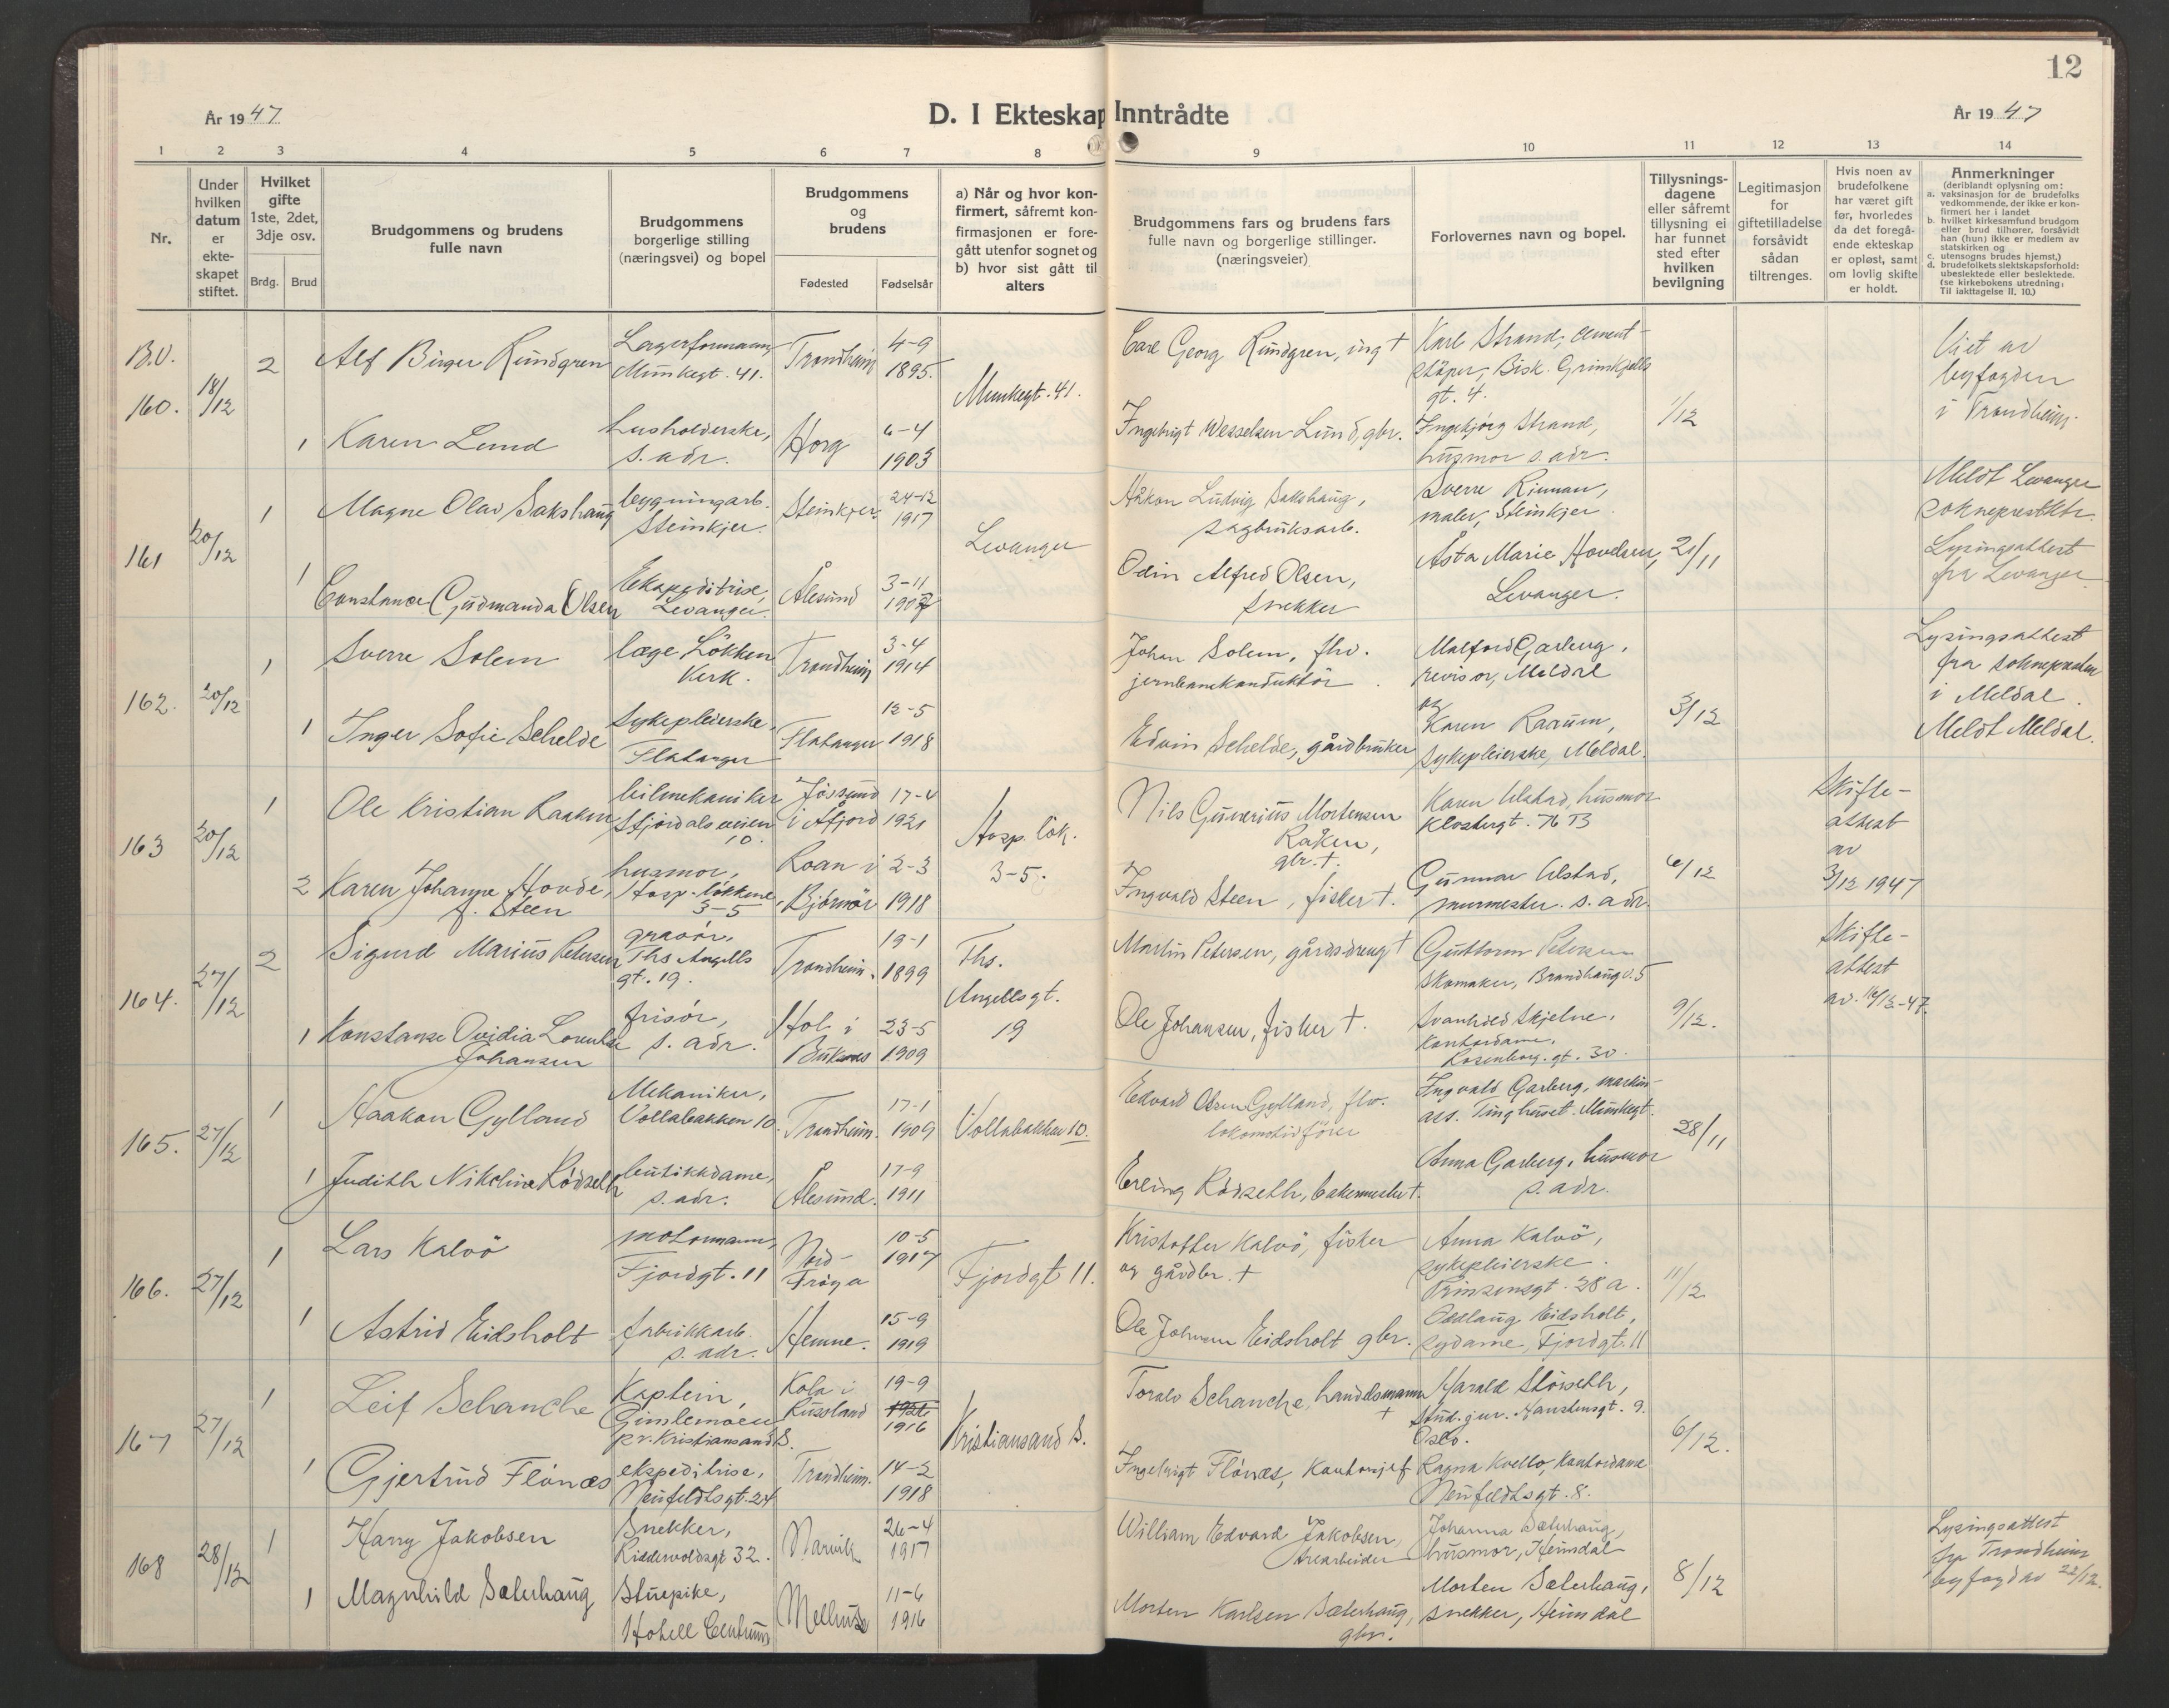 12
År 1947
D. I Ekteskap Inntrådte
År 1947
1 2 3 4 5 6 7 8 9 10 11 12 13 14
Nr.
Under hvilken datum er ekte-skapet stiftet.
Hvilket gifte 1ste, 2det, 3dje osv.
Brdg. Brud
Brudgommens og brudens fulle navn
Brudgommens borgerlige stilling (næringsvei) og bopel
Brudgommens og brudens
Fødested Fødselsår
a) Når og hvor kon-firmert, såfremt kon-firmasjonen er fore-gått utenfor sognet og
b) hvor sist gått til alters
Brudgommens fars og brudens fars fulle navn og borgerlige stillinger. (næringsveier)
Forlovernes navn og bopel.
Tillysnings-dagene eller såfremt tillysning ei har funnet sted efter hvilken bevilgning
Legitimasjon for giftetilladelse forsåvidt sådan tiltrenges.
Hvis noen av brudefolkene har været gift før, hvorledes da det foregå-ende ekteskap er opløst, samt om lovlig skifte er holdt.
Anmerkninger
(deriblandt oplysning om:
a. vaksinasjon for de brudefolks vedkommende, der ikke er kon-firmert her i landet
b. hvilket kirkesamfund brudgom eller brud tilhører, forsåvidt han (hun) ikke er medlem av statskirken og
c. utensogns brudes hjemst.)
d. brudefolkets slektskapsforhold: ubeslektede eller beslektede. (se kirkebokens utredning: Til iakttagelse II. 10.)
B.V.
160. 18/12
2 Alf Birger Rundgren Lagerformann, Munkegt. 41. Trondheim 4-9 1895. Munkegt. 41. Carl Georg Rundgren, ing † Karl Strand, cement-støper, Bisk. Grimkjells gt. 4. 1/12 Viet av byfogden i Trondheim.
1 Karen Lund husholderske, s. adr. Horg 6-4 1903 Ingebrigt Wesselsen Lund, gbr. Ingebjørg Strand, husmor s. adr.
161 20/12
1 Magne Olav Sakshaug bygningsarb. Steinkjer. Steinkjer 24-12 1917 Levanger Håkon Ludvig Sakshaug, sagbruksarb. Sverre Rinnan, maler, Steinkjer. Meldt Levanger sokneprestktr.
1 Constance Gudmanda Olsen Ekspeditrise, Levanger. Ålesund 3-11 Odin Alfred Olsen, snekker Åsta Marie Hovelsen, Levanger. Lysingsattest fra Levanger
162. 20/12
1 Sverre Solem læge Løkken Verk. Trondheim 3-4 1914 Johan Solem, fhv. jernbanekonduktør. Malford Garberg, revisor, Meldal og 3/12 Lysingsattest fra soknepresten i Meldal.
1 Inger Sofie Schelde Sykepleierske, Flatanger Flatanger 12-5 1918 Edvin Schelde, gårdbruker Karen Raaum, sykepleierske, Meldal. Meldt Meldal.
163 20/12
1 Ole Kristian Raaken bilmekaniker Stjørdalsveien 10. Jøssund i Åfjord 17-4 1921 Hosp. løk. 3-5. Nils Gunerius Mortensen Raken, gbr. †. Karen Ulstad, husmor Klostergt. 76 B 6/12 Skifte-attest av 3/12 1947
2 Karen Johanne Hovde, f. Steen husmor, Hosp. løkkene 3-5 Roan i Bjørnør 2-3 1918 Ingvald Steen, fisker †. Gunnar Ulstad, murmester. s. adr.
164. 27/12
2 Sigurd Marius Petersen gravør, Ths Angells gt. 19. Trondheim. 19-1 1899 Ths. Angells gt. 19 Martin Petersen, gårdsdreng † Guttorm Petersen skomaker, Brandhaugv. 5 9/12. Skifte-attest av. 16/12-47.
1 Konstanse Ovidia Lorentse Johansen frisør, s. adr. Hol i Buksnes 23-5 1909 Ole Johansen, fisker †. Svanhild Skjelne, kontordame, Rosenborg. gt. 30.
165. 27/12
1 Haakon Gylland Mekaniker, Vollabakken 10. Trondheim. 17-1 1909 Vollabakken 10. Edvard Olsen Gylland, fhv. lokomotivfører Ingvald Garberg, maskin-ass. Tinghuset. Munkegt. 28/11
1 Judith Nikoline Rødseth butikkdame, s. adr. Ålesund. 17-9 1911 Erling Rødseth, bakermester †. Anna Garberg, husmor s. adr.
166. 27/12
1 Lars Kalvö motormann, Fjordgt. 11 Nord-Frøya 10-5 1917 Fjordgt 11. Kristoffer Kalvö, fisker og gårdbr. † Anna Kalvö, sykepleierske. Prinsensgt. 28 a. 11/12
1 Astrid Eidsholt fabrikkarb. s. adr. Hemne. 15-9 1919 Ole Johnsen Eidsholt gbr. Oddlaug Eidsholt, sydame, Fjordgt. 11
167 27/12
1 Leif Schanche Kaptein, Gimlemoen pr. Kristiansand S. Kola i Russland 19-9 1916 Kristiansand S. Toralv Schanche, handelsmann † Harald Støiseth, Stud. jur. Oslo. 6/12.
1 Gjertrud Flønæs ekspeditrise, Neufeldtsgt. 24 Trondheim. 14-2 1918 Ingebrigt Flønæs, kontorsjef Ragna Kvello, kontordame Neufeldtsgt. 8.
168 28/12
1 Harry Jakobsen Snekker, Riddervoldsgt 32. Narvik 26-4 1917 William Edvard Jakobsen, Johanna Sæterhaug, husmor, Heimdal 8/12 Lysingsattest fra Trondheim byfogd av 22/12.
1 Magnhild Sæterhaug Stuepike, Hotell Centrum Melhus 11-6 1916 Morten Karlsen Sæterhaug, gbr. Morten Sæterhaug, snekker, Heimdal